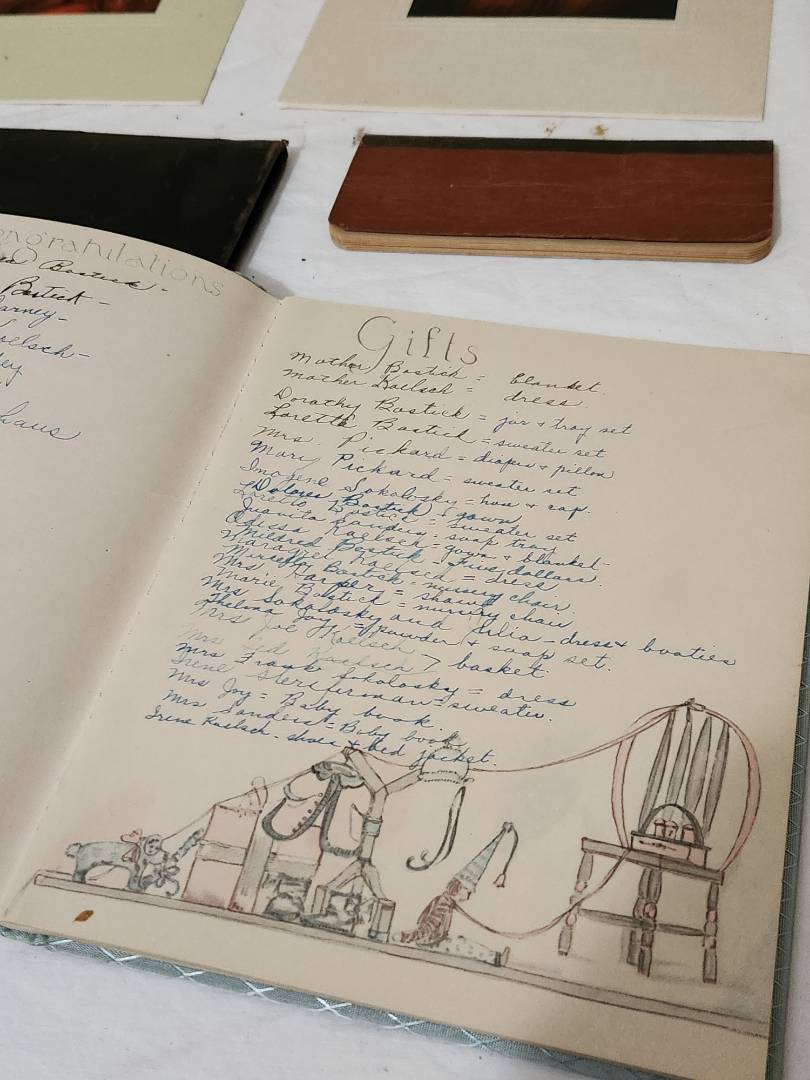 ongratulations
Bostick -
Bostick -
arney -
oelsch -
ey
haus
Gifts
Mother Bostick = blanket.
Mother Koelsch = dress.
Dorothy Bostick = jar & tray set
Loretta Bostick = sweater set
Mrs. Pickard = diapers & pillow
Mary Pickard = sweater set
Imogene Sokolosky = hose & cap.
Dolores Bostick & gown
Loretto Bostick = sweater set
Juanita Sanders - soap tray
Odessa Koelsch = gown & blanket -
Mildred Bostick = five dollars.
Margaret Koelsch = dress
Bostick = nursery chair.
Mrs Harper = shawl
Marie Bostick = nursery chair
Mrs Sokolosky and Julia - dress & booties
Thelma Joy = powder & soap set.
Mrs Joe Koelsch
Mrs Koelsch > basket.
Mrs Frank Sokolosky = dress
Irene = sweater.
Mrs Joy = Baby book.
Mrs Sanders = Baby book
Irene Koelsch - shoes & bed jacket.